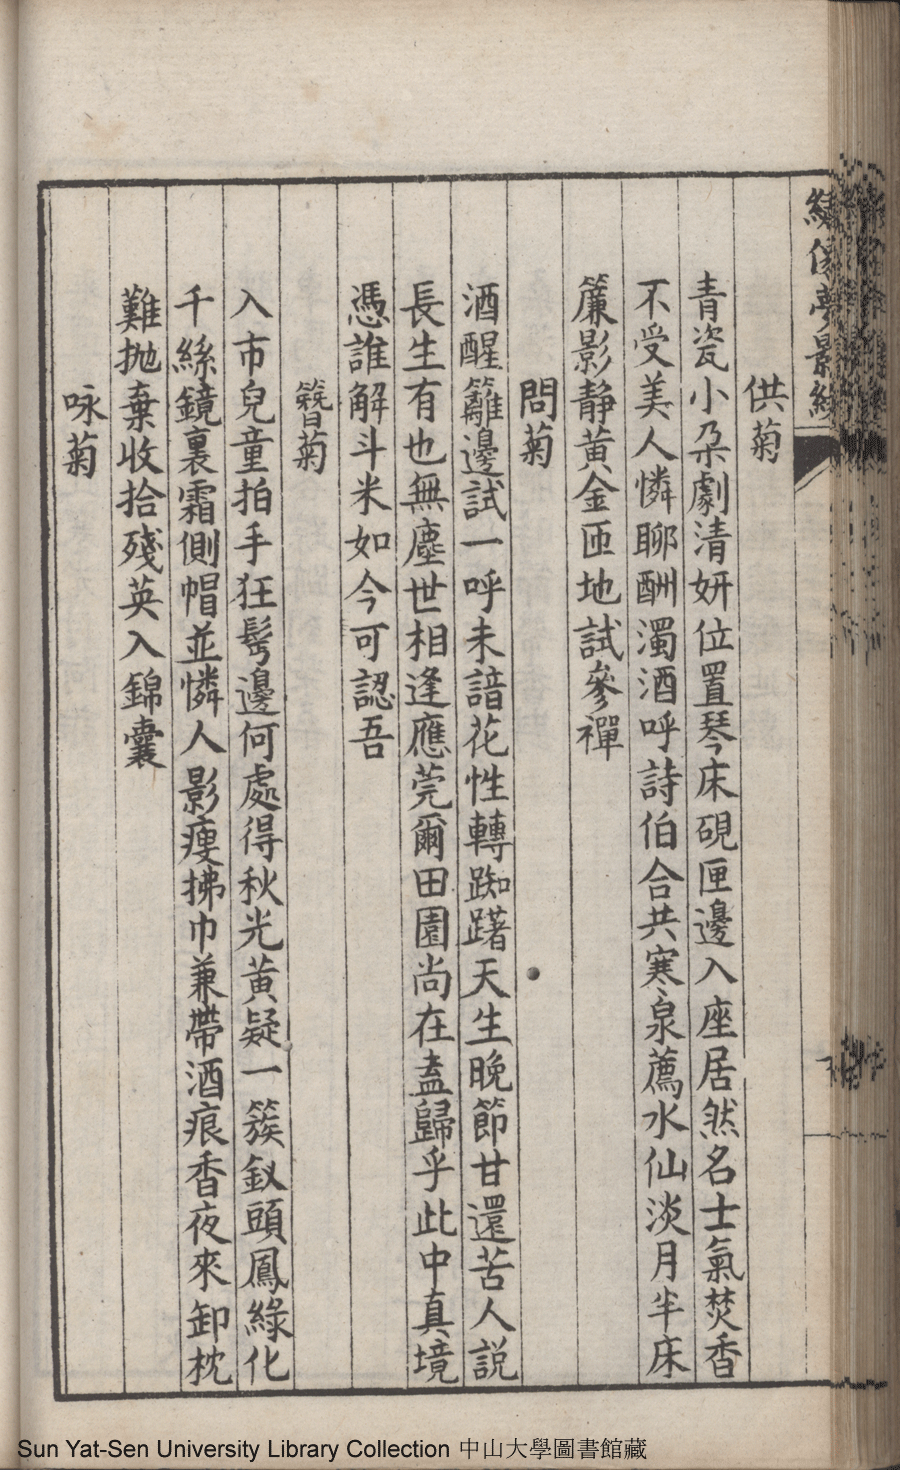 供菊
青瓷小朶劇清妍位置琴床硯匣邊入座居然名士氣焚香
不受美人憐聊酬濁酒呼詩伯合共寒泉薦水仙淡月半床
簾影静黄金匝地試參禪
問菊
酒醒籬邊試一呼未諳花性轉踟躇天生晚節甘還苦人説
長生有也無塵世相逢應莞爾田園尚在盍歸乎此中真境
憑誰解斗米如今可認吾
簪菊
入市兒童拍手狂髩邊何處得秋光黄疑一簇釵頭鳳綠化
千絲鏡裏霜側帽並憐人影瘦拂巾兼帶酒痕香夜來卸枕
難抛棄收拾殘英入錦囊
咏菊
Sun Yat-Sen University Library Collection 中山大學圖書館藏